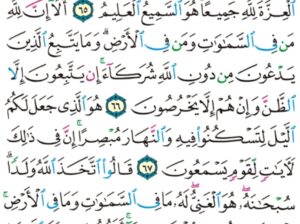 الْعِزَّةَ لِلَّهِ جَمِيعًا هُوَ السَّمِيعُ الْعَلِيمُ ٦٥ أَلَا إِنَّ لِلَّهِ
مَن فِي السَّمَٰوَٰتِ وَمَن فِي الْأَرْضِ وَمَا يَتَّبِعُ الَّذِينَ
يَدْعُونَ مِن دُونِ اللَّهِ شُرَكَاءَ إِن يَتَّبِعُونَ إِلَّا
الظَّنَّ وَإِنْ هُمْ إِلَّا يَخْرُصُونَ ٦٦ هُوَ الَّذِي جَعَلَ لَكُمُ
الَّيْلَ لِتَسْكُنُوا فِيهِ وَالنَّهَارَ مُبْصِرًا إِنَّ فِي ذَٰلِكَ
لَآيَٰتٍ لِقَوْمٍ يَسْمَعُونَ ٦٧ قَالُوا اتَّخَذَ اللَّهُ وَلَدًا
سُبْحَٰنَهُ هُوَ الْغَنِيُّ لَهُ مَا فِي السَّمَٰوَٰتِ وَمَا فِي الْأَرْضِ